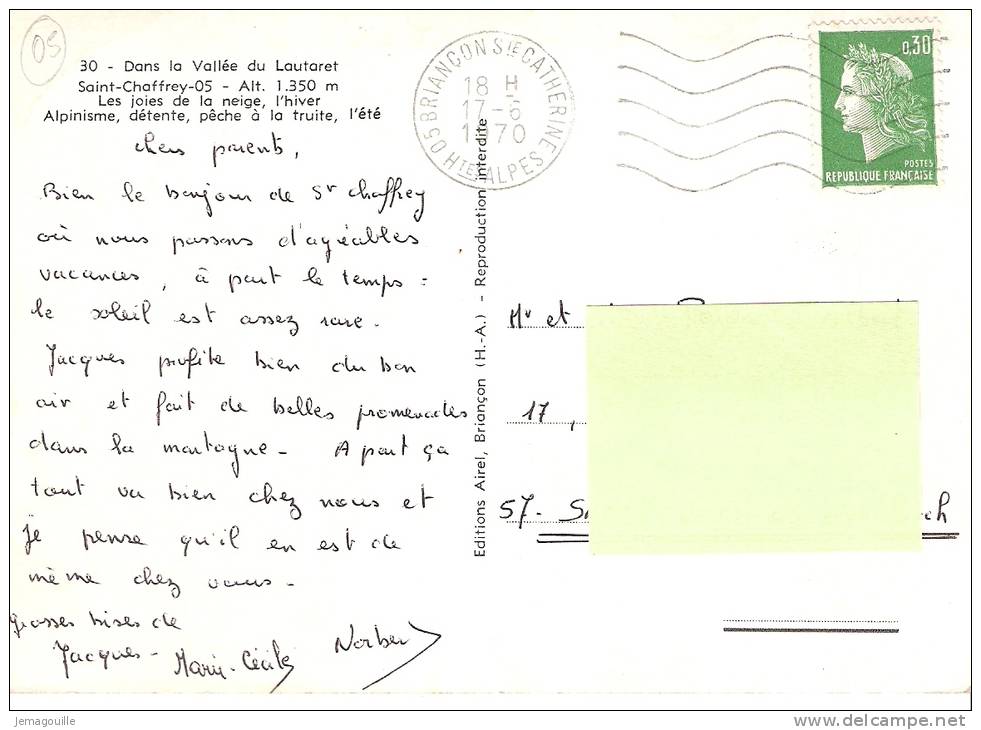 05
30 - Dans la Vallée du Lautaret
Saint-Chaffrey-05 - Alt. 1.350 m
Les joies de la neige, l'hiver
Alpinisme, détente, pêche à la truite, l'été
chers parents,
Bien le bonjour de St chaffrey
où nous passons d'agréables
vacances, à part le temps :
le soleil est assez rare.
Jacques profite bien du bon
air et fait de belles promenades
dans la montagne - A part ça
tout va bien chez nous et
je pense qu'il en est de
même chez vous -
grosses bises de
Jacques - Marie-Cécile Norbert
Editions Airel, Briançon (H.-A.) - Reproduction interdite
05 BRIANCON STE CATHERINE
18 H
17-6
1970
HTES ALPES
0,30
POSTES
REPUBLIQUE FRANÇAISE
Mr et
17,
57- ch
Jemagouille
delcampe.net